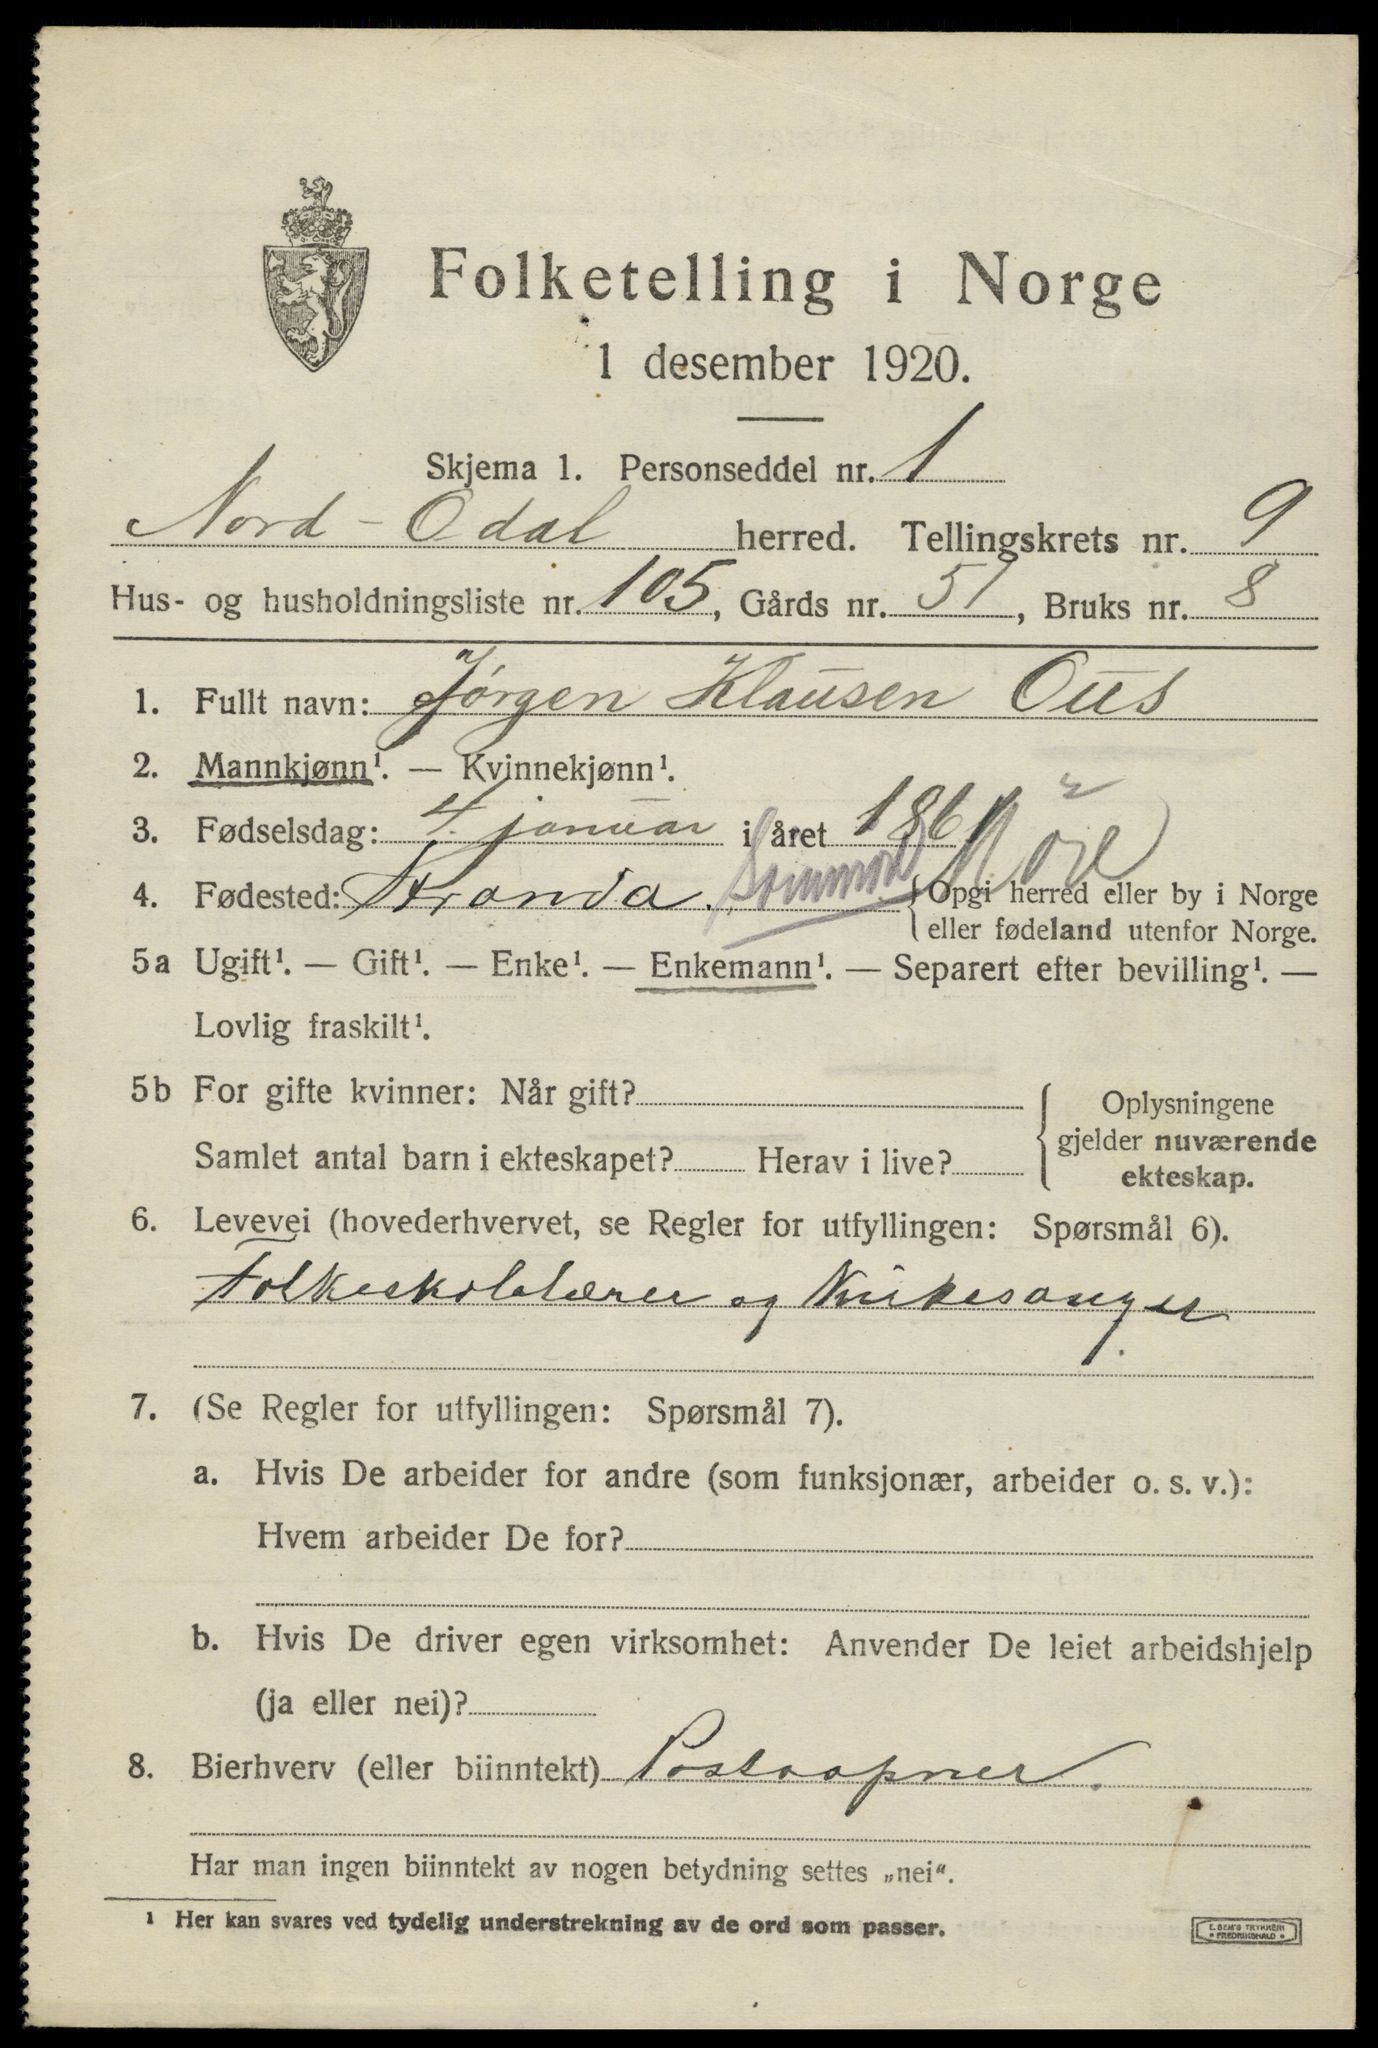 Folketelling i Norge
1 desember 1920.
Skjema 1. Personseddel nr. 1
Nord-Odal herred. Tellingskrets nr. 9
Hus- og husholdningsliste nr. 105, Gårds nr. 51, Bruks nr. 8
1. Fullt navn: Jørgen Klausen Ous
2. Mannkjønn¹. — Kvinnekjønn¹.
3. Fødselsdag: 4. januar i året 1861
4. Fødested: Stranda. Sunnmöre Möre {Opgi herred eller by i Norge
eller fødeland utenfor Norge.
5a Ugift¹. — Gift¹. — Enke¹. — Enkemann¹. — Separert efter bevilling¹. —
Lovlig fraskilt¹.
5b For gifte kvinner: Når gift?
Samlet antal barn i ekteskapet? Herav i live?
Oplysningene
gjelder nuværende
ekteskap.
6. Levevei (hovederhvervet, se Regler for utfyllingen: Spørsmål 6).
Folkeskolelærer og Kirkesanger
7. (Se Regler for utfyllingen: Spørsmål 7).
a. Hvis De arbeider for andre (som funksjonær, arbeider o. s. v.):
Hvem arbeider De for?
b. Hvis De driver egen virksomhet: Anvender De leiet arbeidshjelp
(ja eller nei)?
8. Bierhverv (eller biinntekt) Postaapner.
Har man ingen biinntekt av nogen betydning settes „nei".
¹ Her kan svares ved tydelig understrekning av de ord som passer.
E. SEM'S TRYKKERI
FREDRIKSHALD